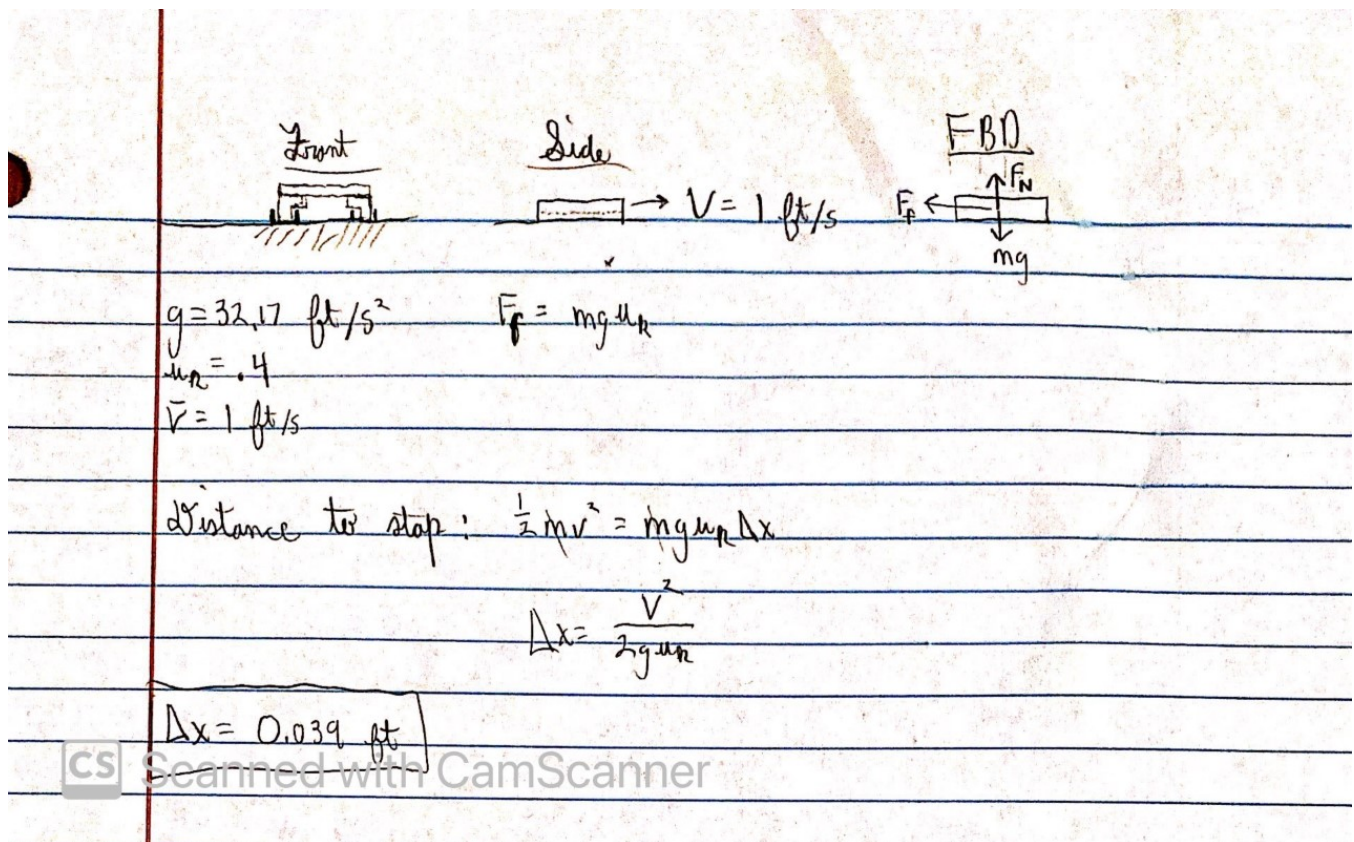 Front Side FBD
F_N
→ V = 1 ft/s F_f
mg
g = 32.17 ft/s² F_f = mgμ_k
μ_k = .4
v̄ = 1 ft/s
Distance to stop: ½mv² = mgμ_kΔx
Δx = v²/2gμ_k
Δx = 0.039 ft
CS Scanned with CamScanner